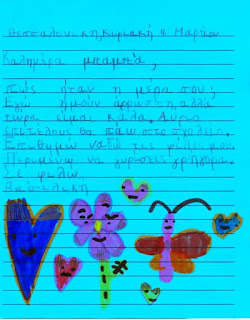 Θεσσαλονίκη, Κυριακή 4 Μαρτίου
Καλημέρα μπαμπά,
Πώς ήταν η μέρα σου;
Εγώ ήμουν άρρωστη αλλά
τώρα είμαι καλά. Αύριο
επιτέλους θα πάω στο σχολείο.
Επιθυμώ να δω τις φίλες μου.
Περιμένω να γυρίσεις γρήγορα.
Σε φιλώ,
Βασιλική